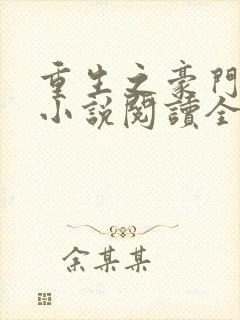 重生之豪門
小説閱讀全
余某某